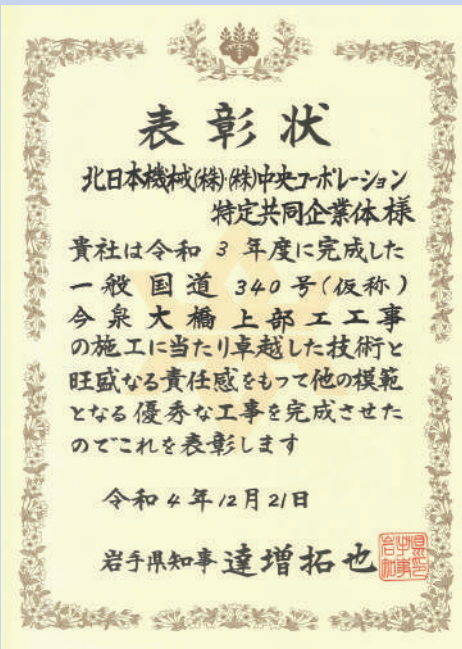 表彰状
北日本機械(株)・(株)中央コーポレーション
特定共同企業体 様
貴社は令和 3 年度に完成した
一般国道 340 号(仮称)
今泉大橋上部工工事
の施工に当たり卓越した技術と
旺盛なる責任感をもって他の模範
となる優秀な工事を完成させた
のでこれを表彰します
令和 4 年 12 月 21 日
岩手県知事 達増拓也